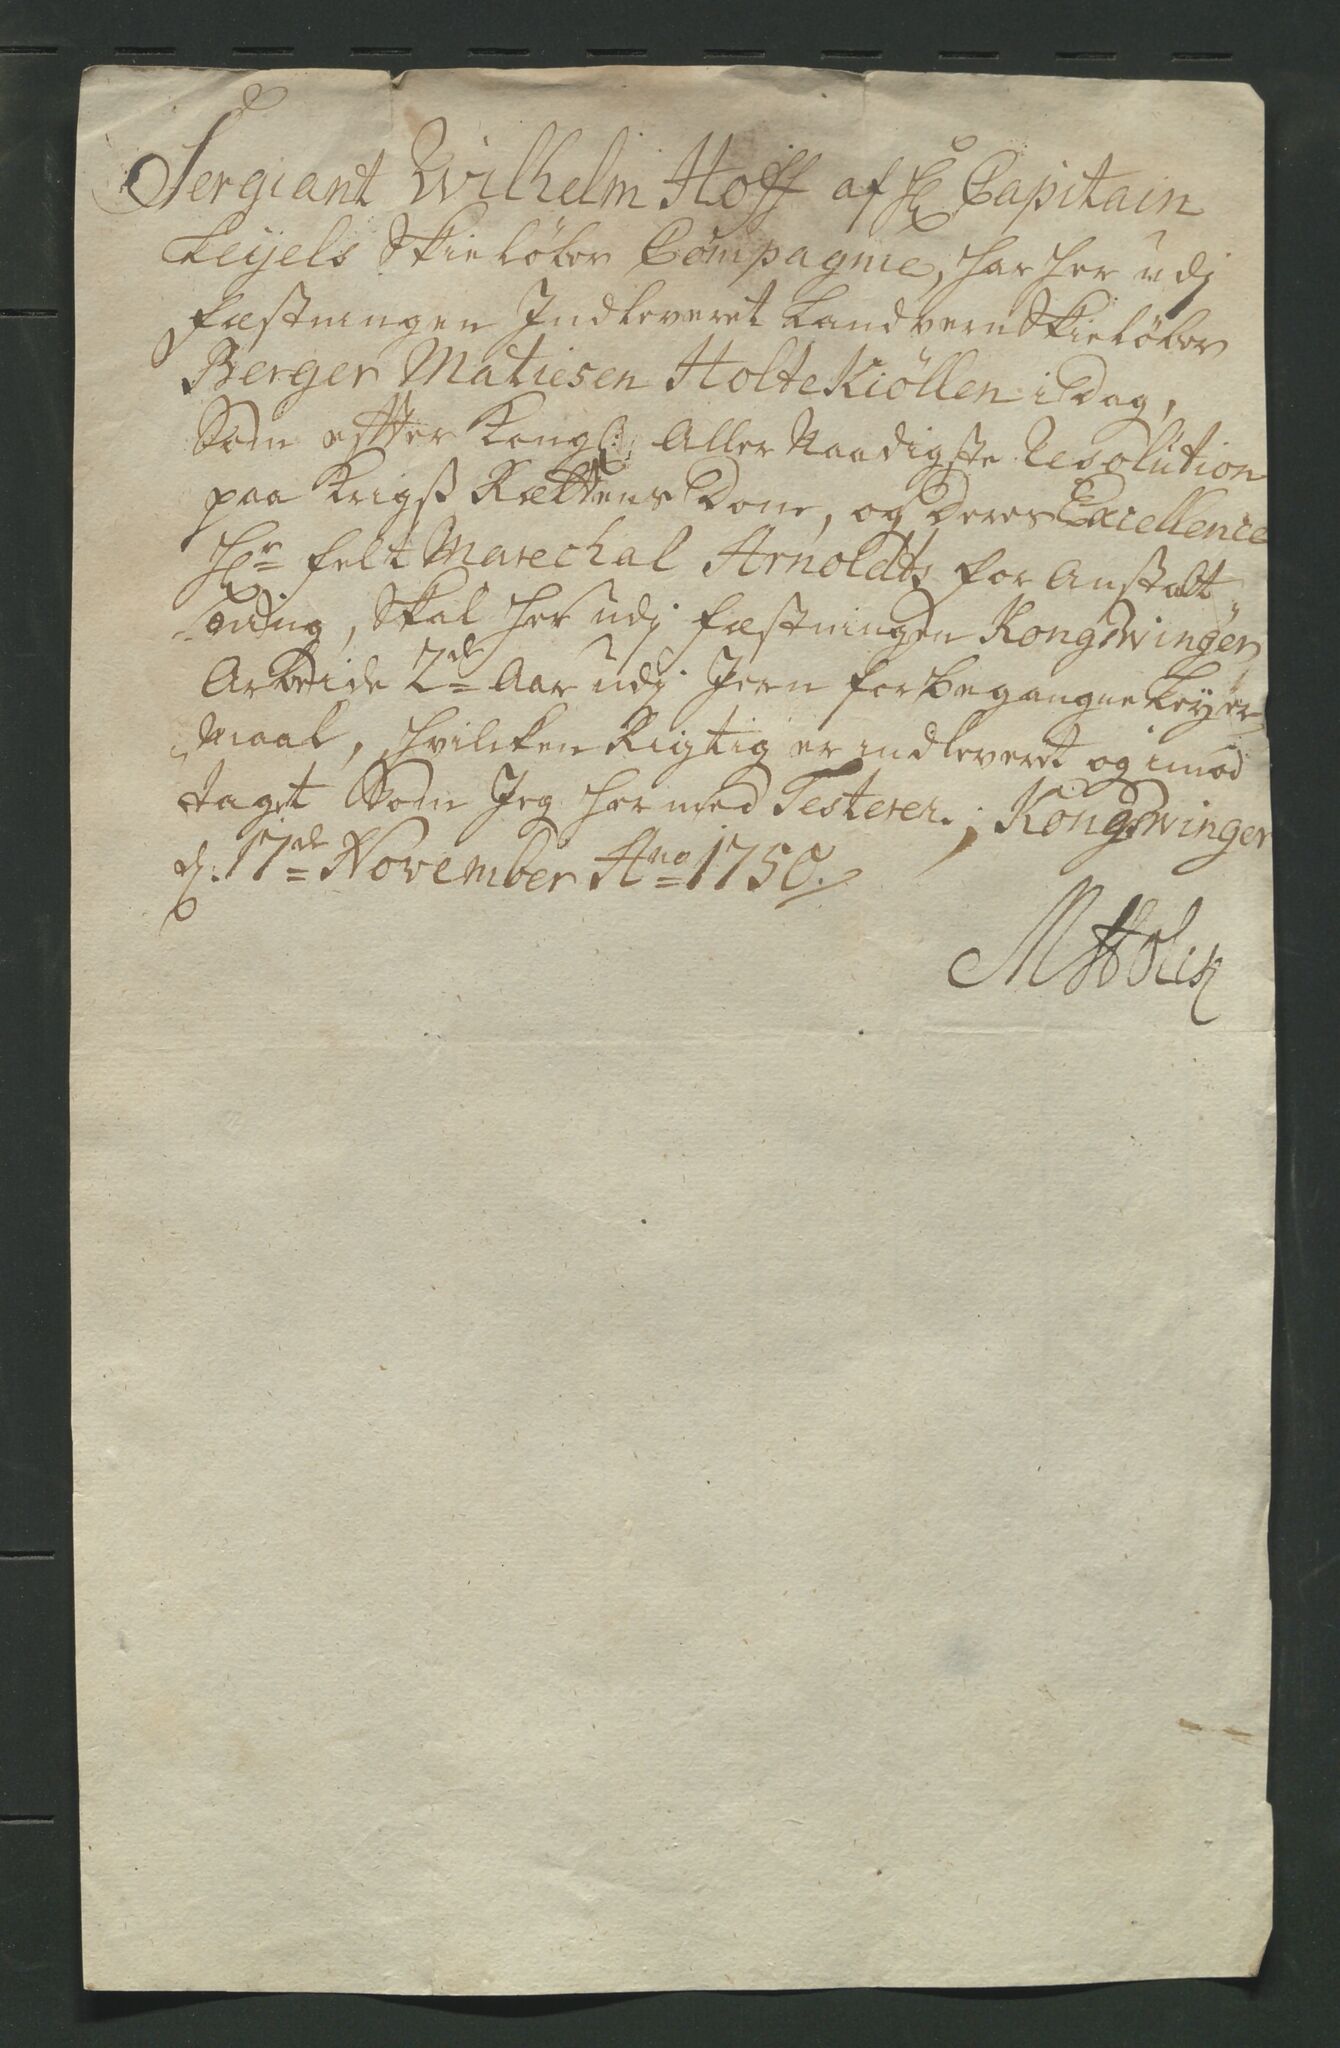 Sergiant Wilhelm Hoff af Hr Capitain
Leijels Skieløber Compagnie, har her udj
fæstningen Indleveret Landvern Skieløber
Berger Matiesen Holte Kiöllen i Dag,
Som effter Kongl: Aller Naadigste Resolution
paa Krigß Rættens Dom, og Deres Excellence
Hr felt Marechal Arnoldts for Anstalt
ning, Skal her udj fæstningen Kongswinger
Arbeide 2de Aar udj Jern for begangne Leyer
maal, hvilcken Rigtig er indleveret og imod
taget Som Jeg her med Testerer. Kongswinger
d. 17de November Ano 1750.